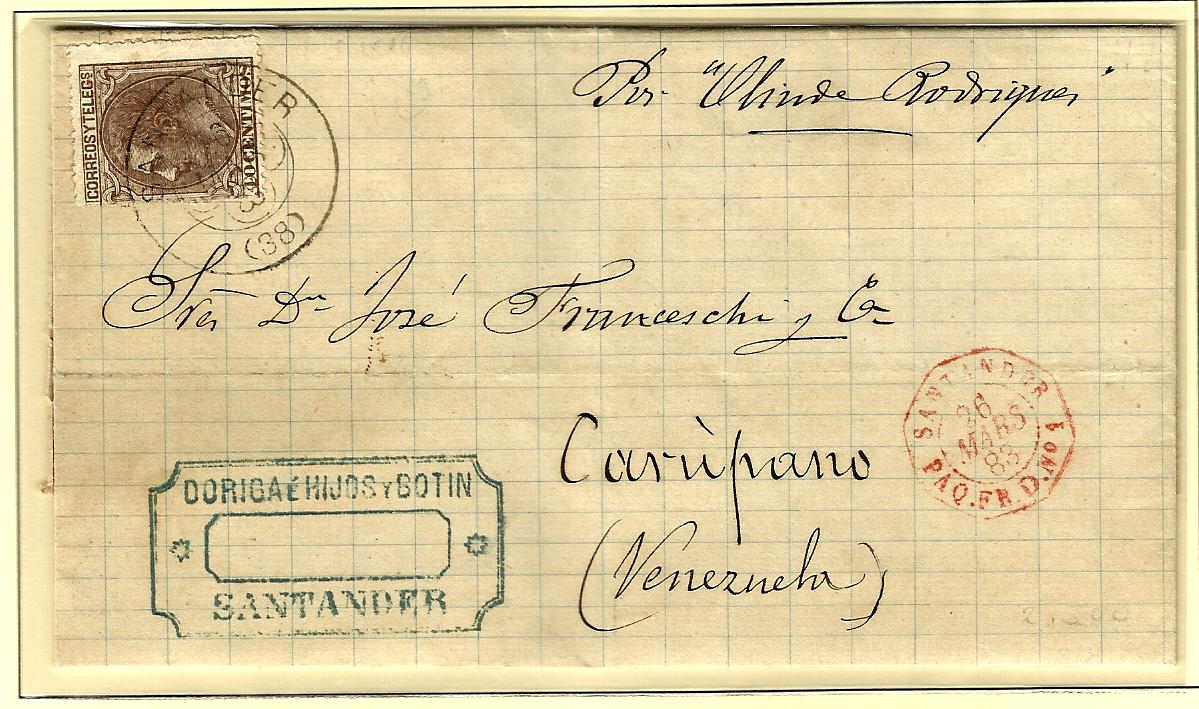 CORREOS Y TELEGS
40 CENTIMOS
(38)
Por "Olinde Rodrigues"
Sres Dn José Franceschi y Ca
Carúpano
(Venezuela)
SANTANDER
26
MARS
83
PAQ. FR. D. No 1
DORIGA É HIJOS Y BOTIN
SANTANDER